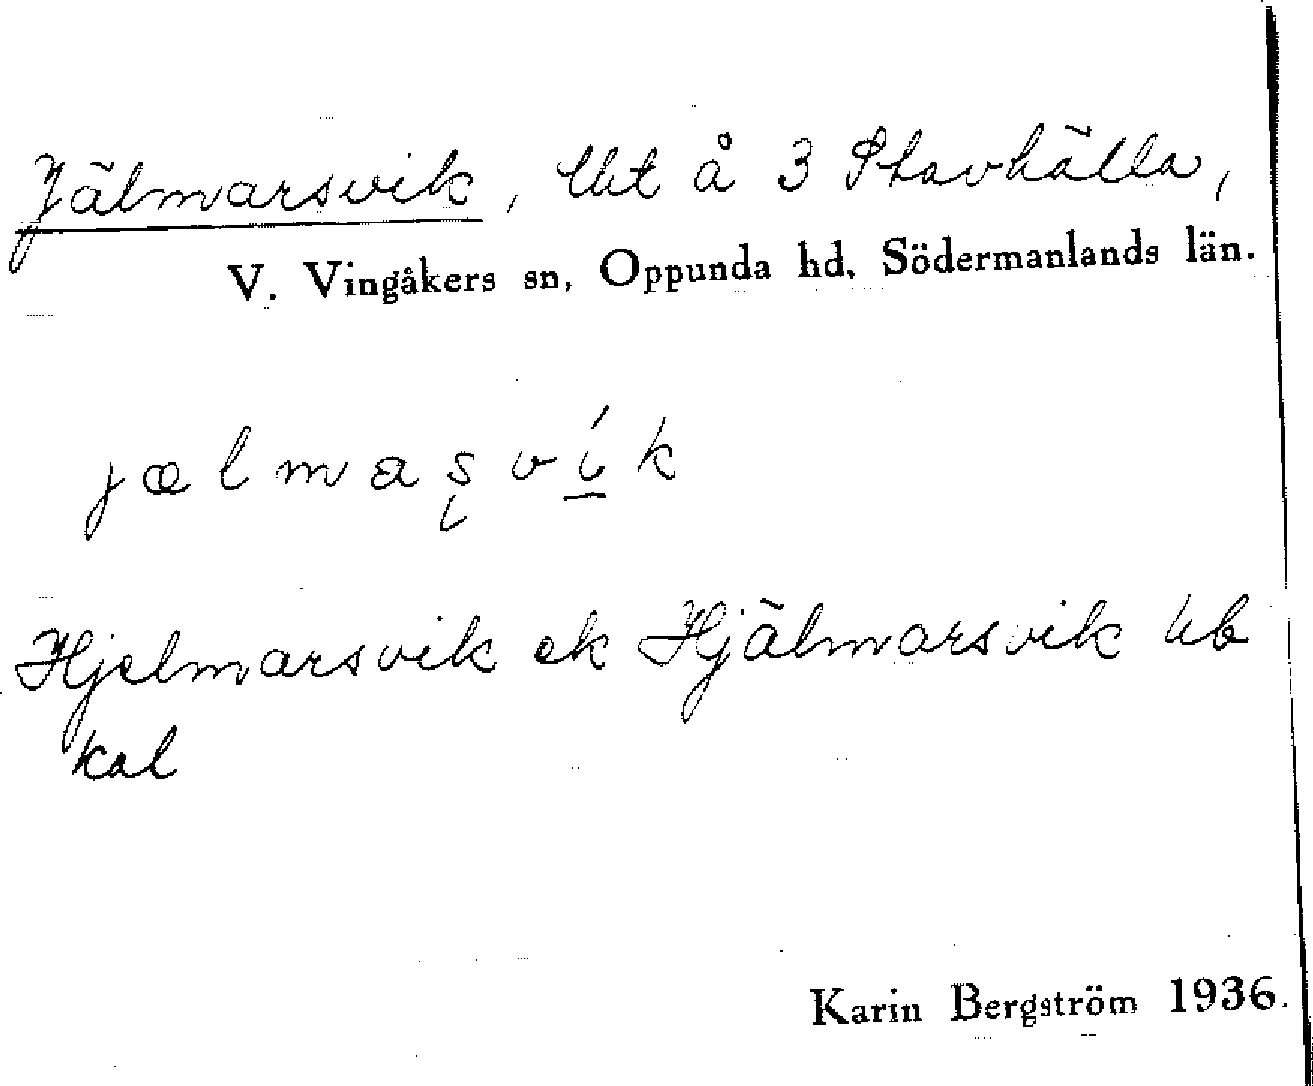 Jälmarsvik, lht å 3 Stavhälla,
V. Vingåkers sn, Oppunda hd, Södermanlands län.
jælmaʂvík
Hjelmarsvik ek Hjälmarsvik hb
kal
Karin Bergström 1936.